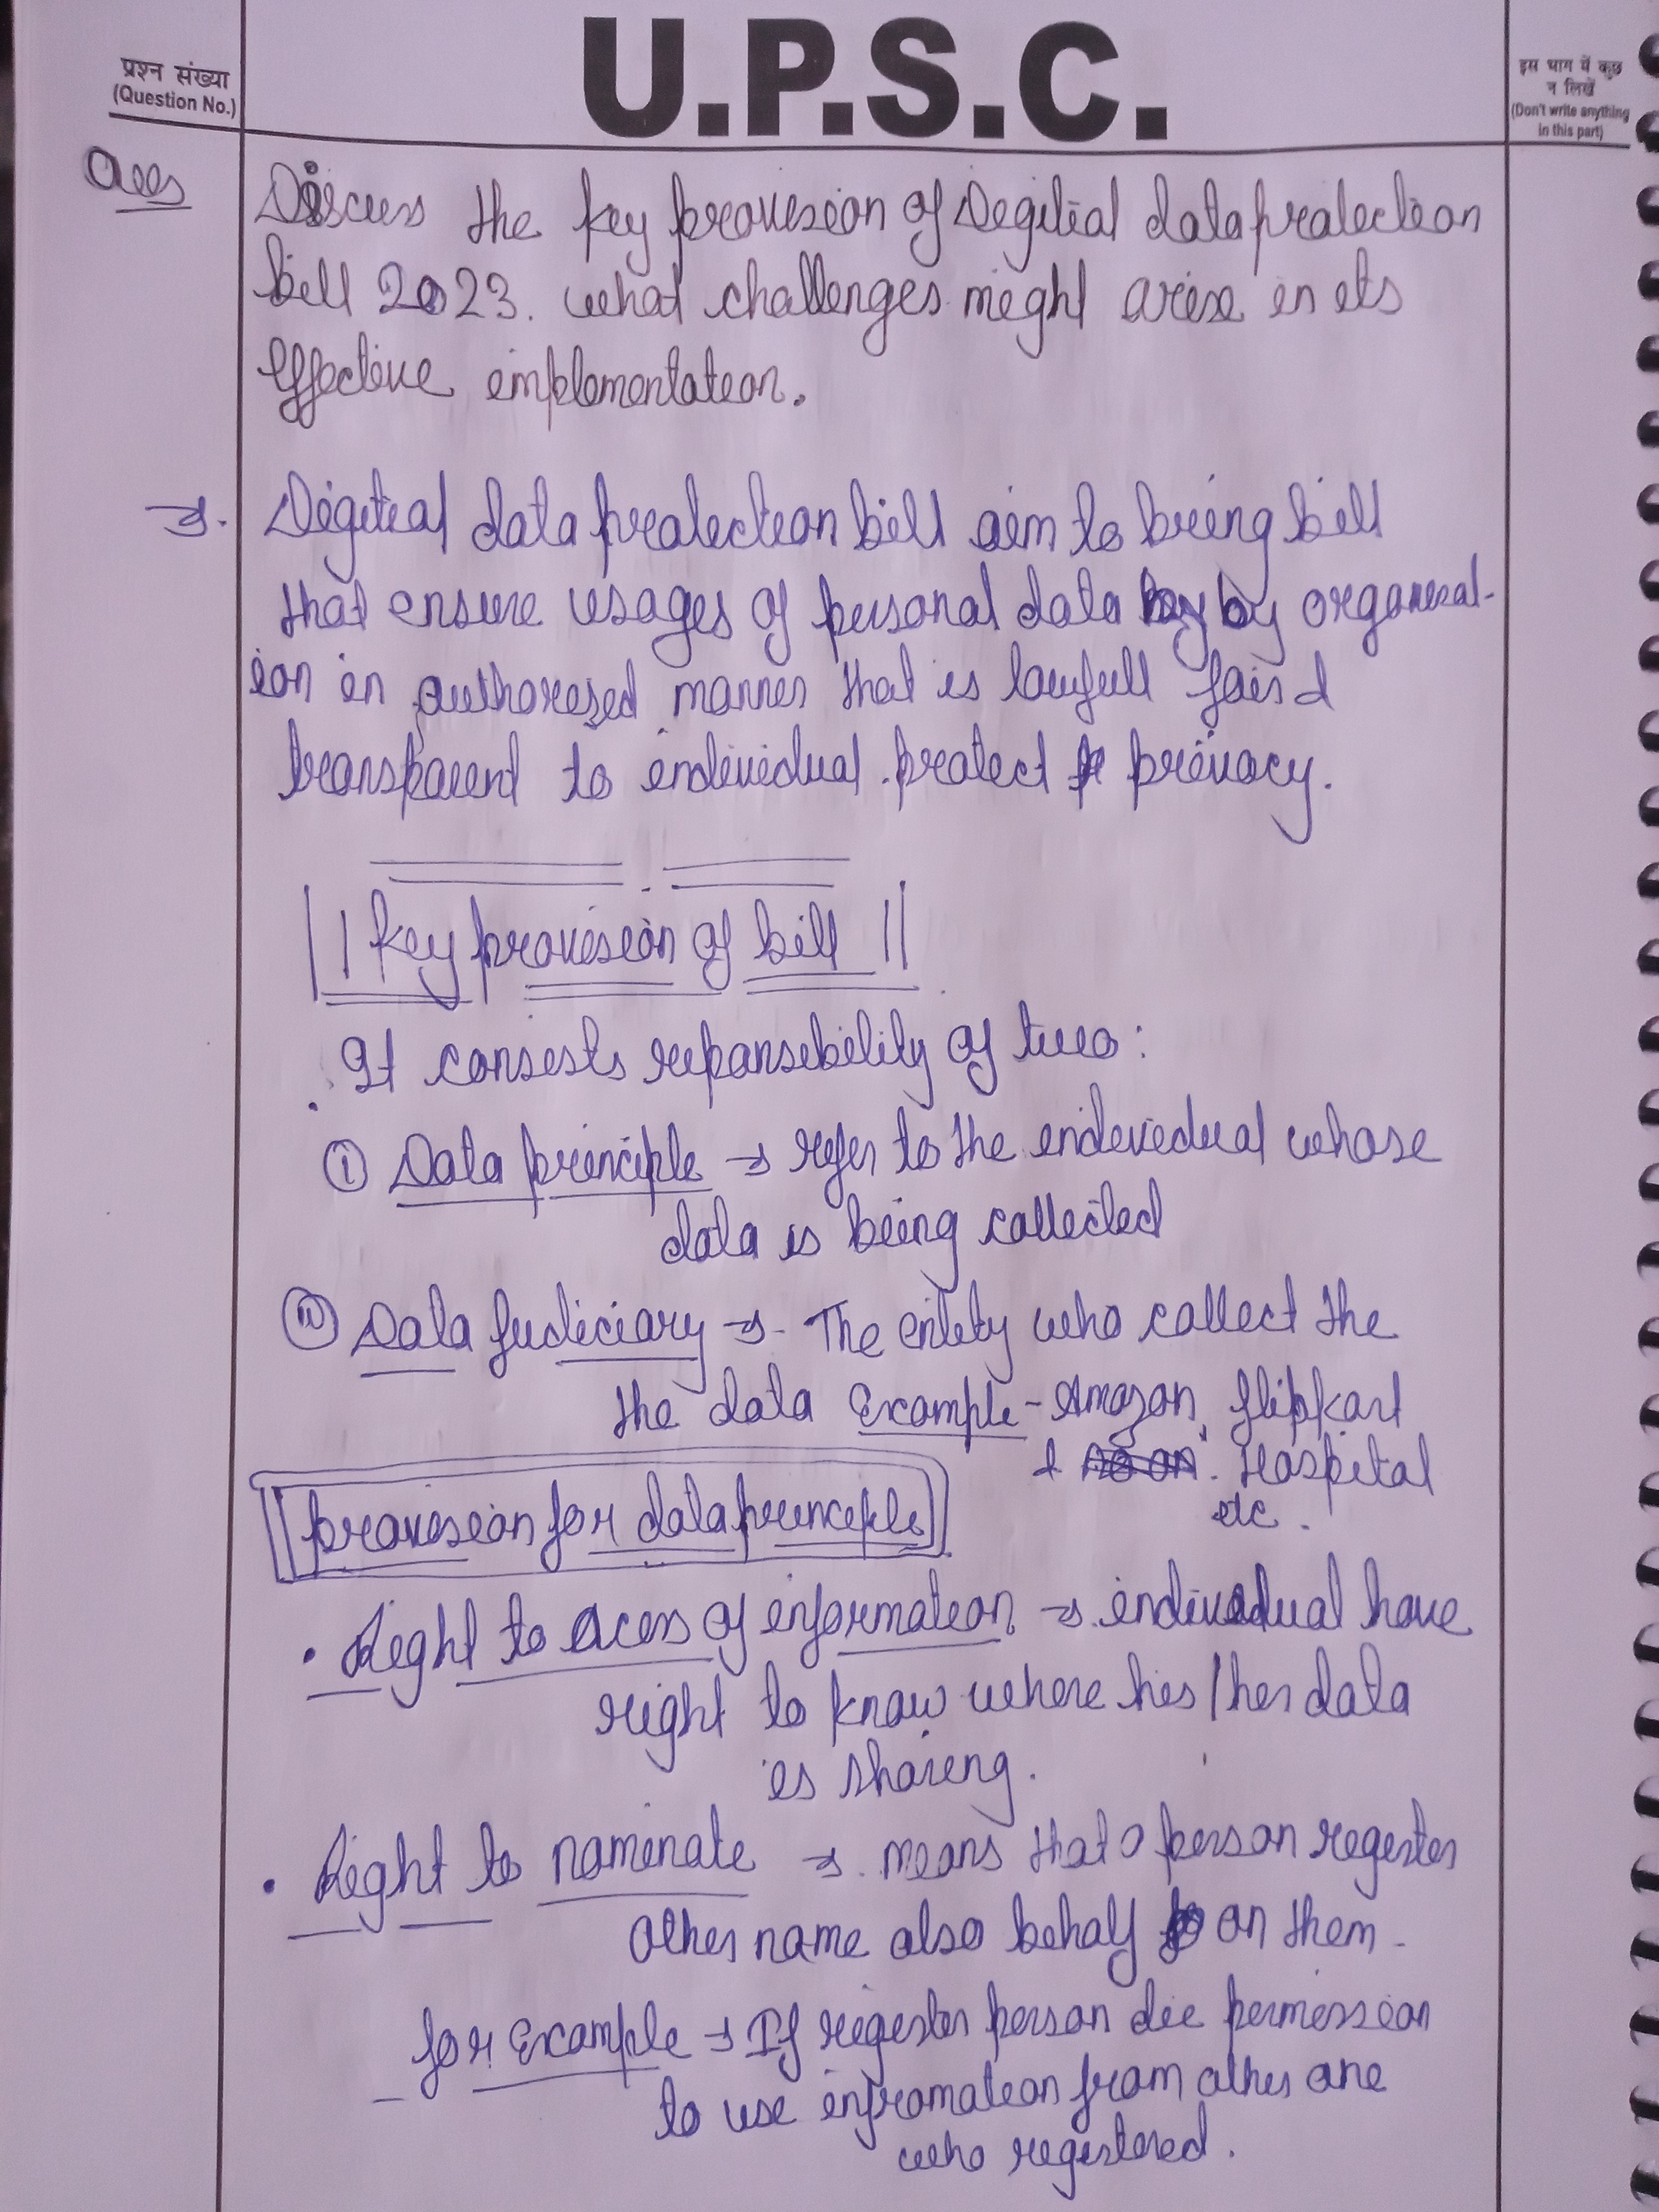 U.P.S.C.
प्रश्न संख्या
(Question No.)
इस भाग में कुछ
न लिखें
(Don't write anything
in this part)
Ques
Discuss the key provision of Degitial data protection
bill 2023. what challenges meght arise in its
effective emplementation.
→ Digitial data protection bill aim to bring bill
that ensure usages of personal data by by organisat-
ion in authorised manner that is lawfull fair &
transparent to endividual protect privacy.
|| Key provision of bill ||
It consists reponsebility of two:
① Data principle → refer to the endevedual whose
data is being collected
② Data fudiciary → The entity who collect the
the data Example - Amazon, flipkart
& so on. Hospital
etc.
provision for data principle
• Right to acess of information → individual have
right to know where his/her data
is sharing.
• Right to nominate → means that a person register
other name also behalf on them.
- for Example → If register person die permission
to use infromation from other one
who registered.